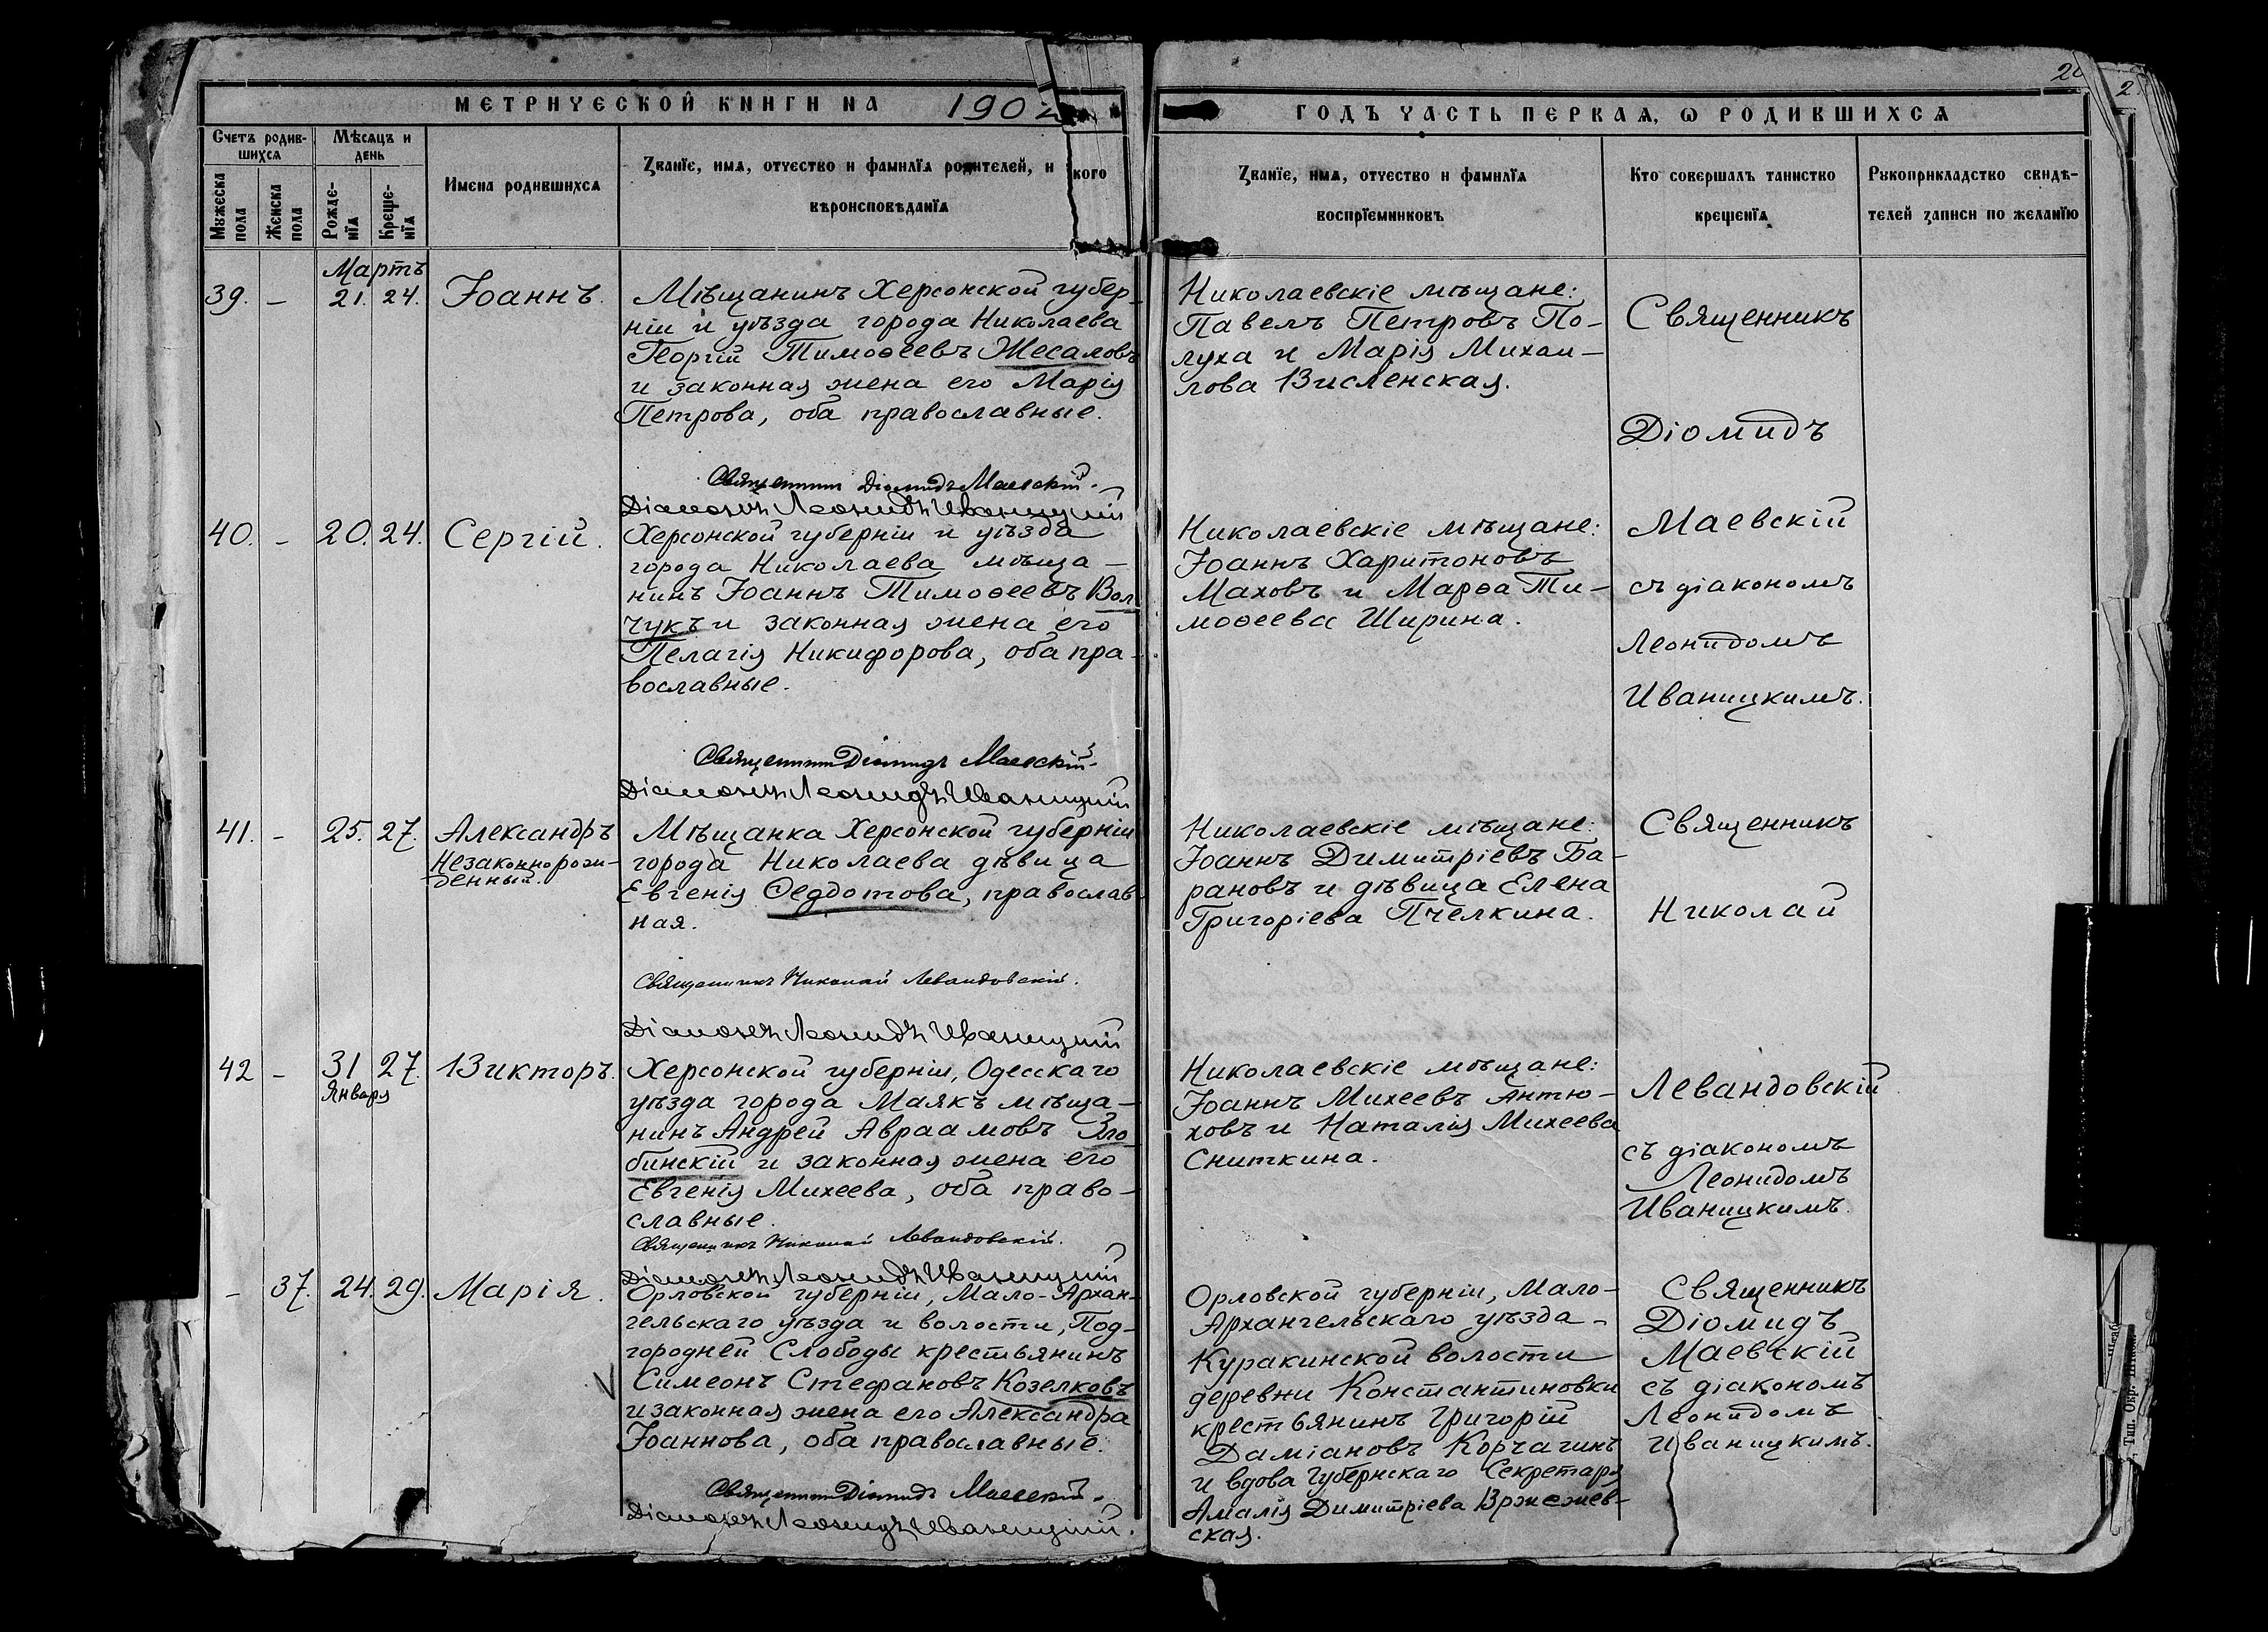 МЕТРИЧЕСКОЙ КНИГИ НА 1902
Счетъ родив-
шихся
Мѣсяцъ и
день
Мужеска
пола
Женска
пола
Рожде-
нїя
Креще-
нїя
Имена родившихся
Званїе, имя, отчество и фамилїя родителей, и кого
вѣроисповѣданїя
ГОДЪ ЧАСТЬ ПЕРВАЯ, Ѡ РОДИВШИХСЯ
Званїе, имя, отчество и фамилїя
воспрїемниковъ
Кто совершалъ таинство
крещенїя
Рукоприкладство свидѣ-
телей записи по желанїю
Мартъ
39. – 21. 24. Іоаннъ.
Мѣщанинъ Херсонской губер-
ніи и уѣзда города Николаева
Георгій Тимоѳеевъ Жесаловъ
и законная жена его Марія
Петрова, оба православные.
Священникъ Діомидъ Маевскій.
Діаконъ Леонидъ Иваницкій
Николаевскіе мѣщане:
Павелъ Петровъ По-
луха и Марія Михаи-
лова Висленская.
Священникъ
Діомидъ
Маевскій
съ діакономъ
Леонидомъ
Иваницкимъ.
40. – 20. 24. Сергій.
Херсонской губерніи и уѣзда
города Николаева мѣща-
нинъ Іоаннъ Тимоѳеевъ Вол
чукъ и законная жена его
Пелагія Никифорова, оба пра-
вославные.
Священникъ Діомидъ Маевскій.
Діаконъ Леонидъ Иваницкій
Николаевскіе мѣщане:
Іоаннъ Харитоновъ
Маховъ и Марѳа Ти-
моѳеева Ширина.
41. – 25. 27. Александръ
Незаконнорож-
денный.
Мѣщанка Херсонской губерніи
города Николаева дѣвица
Евгенія Ѳедотова, православ
ная.
Священникъ Николай Левандовскій.
Діаконъ Леонидъ Иваницкій
Николаевскіе мѣщане:
Іоаннъ Димитріевъ Ба-
рановъ и дѣвица Елена
Григоріева Пчелкина.
Священникъ
Николай
Левандовскій
съ діакономъ
Леонидомъ
Иваницкимъ.
42 – 31 27. Викторъ.
Января
Херсонской губерніи, Одесскаго
уѣзда города Маякъ мѣща-
нинъ Андрей Авраамовъ
бинскій и законная жена его
Евгенія Михеева, оба право-
славные.
Священникъ Николай Левандовскій.
Діаконъ Леонидъ Иваницкій
Николаевскіе мѣщане:
Іоаннъ Михеевъ Антю-
ховъ и Наталія Михеева
Сниткина.
– 37. 24. 29. Марія.
Орловской губерніи, Мало-Архан-
гельскаго уѣзда и волости, Под-
городней Слободы крестьянинъ
Симеонъ Стефановъ Козелковъ
и законная жена его Александра
Іоаннова, оба православные.
Священникъ Діомидъ Маевскій.
Діаконъ Леонидъ Иваницкій.
Орловской губерніи, Мало-
Архангельскаго уѣзда –
Куракинской волости
деревни Константиновки
крестьянинъ Григорій
Даміановъ Корчагинъ
и вдова Губернскаго Секретаря
Амалія Димитріева Вржежев-
ская.
Священникъ
Діомидъ
Маевскій
съ діакономъ
Леонидомъ
Иваницкимъ.
Тип. Окр. Штаба